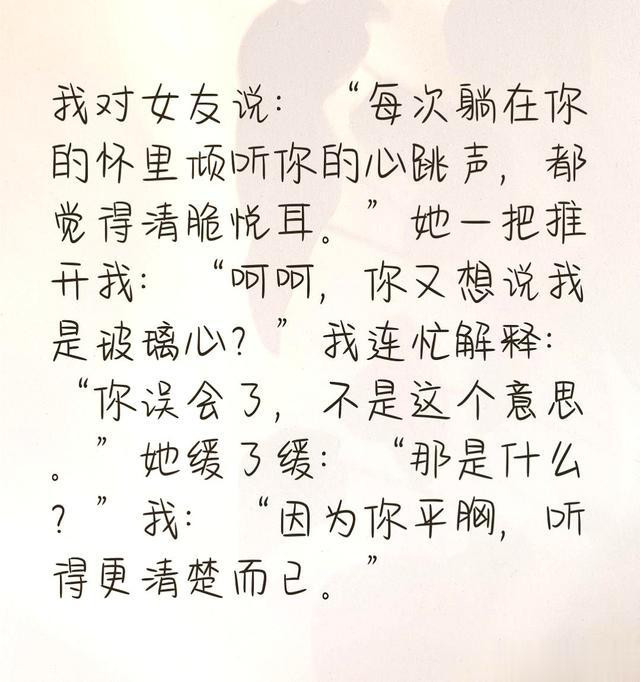 我对女友说：“每次躺在你
的怀里倾听你的心跳声，都
觉得清脆悦耳。”她一把推
开我：“呵呵，你又想说我
是玻璃心？”我连忙解释：
“你误会了，不是这个意思
。”她缓了缓：“那是什么
？”我：“因为你平胸，听
得更清楚而已。”